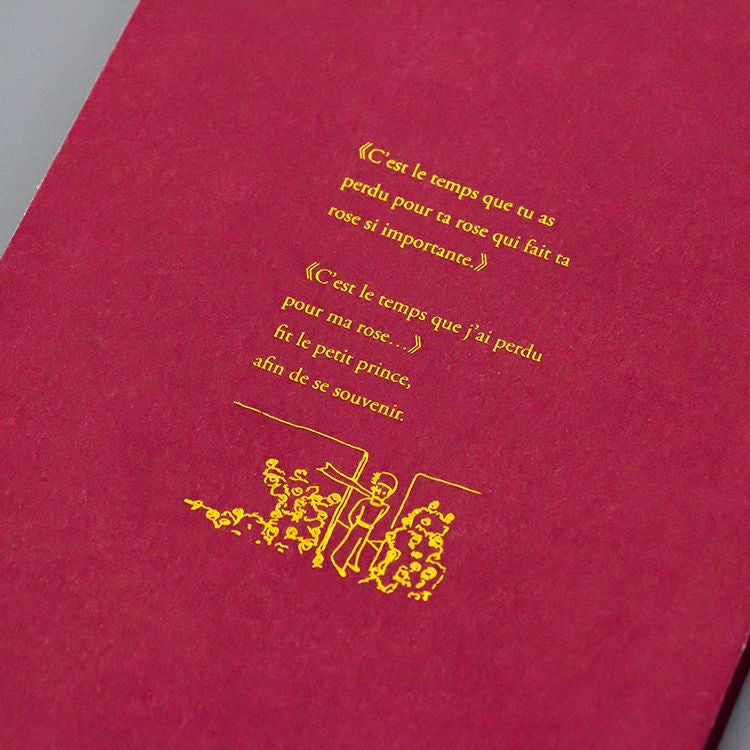 《C'est le temps que tu as
perdu pour ta rose qui fait ta
rose si importante.》
《C'est le temps que j'ai perdu
pour ma rose...》
fit le petit prince,
afin de se souvenir.